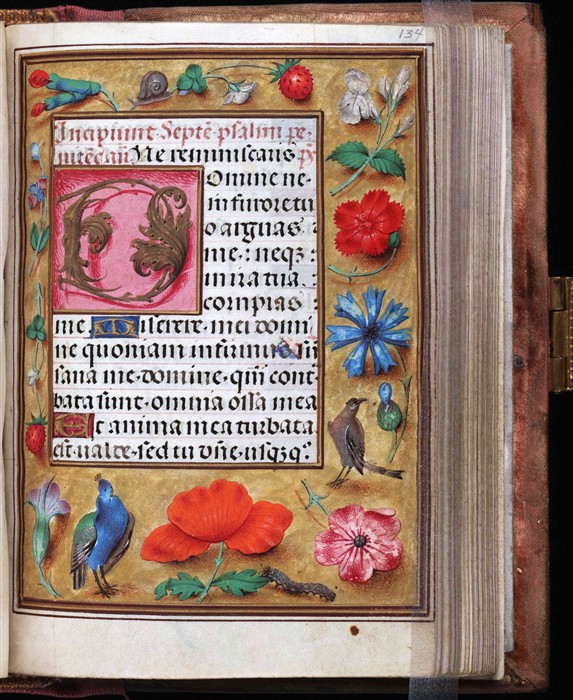 134
Incipiunt·Septē·psalmi pe-
nitēciał Ne reminiscaris
Domine ne-
in furore tu
o arguas
me: neqȝ:
in ira tua.
corripias:
me Miserere·mei domi
ne quoniam infirmus
sana me·domine·qm̄ cont
bata sunt·omnia ossa mea
Et anima mea turbata
est·ualde·sed tu dn̄e·usqȝq°.